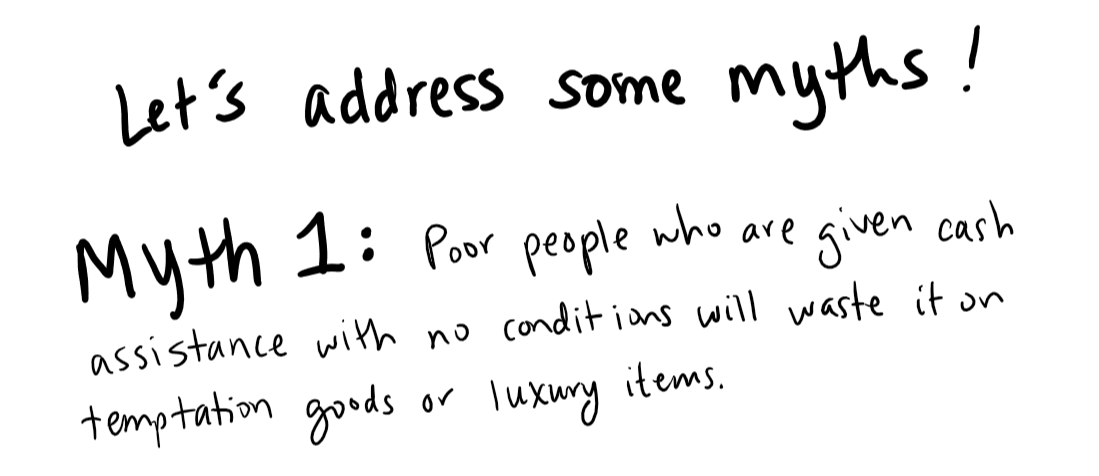 Let's address some myths!
Myth 1: Poor people who are given cash
assistance with no conditions will waste it on
temptation goods or luxury items.